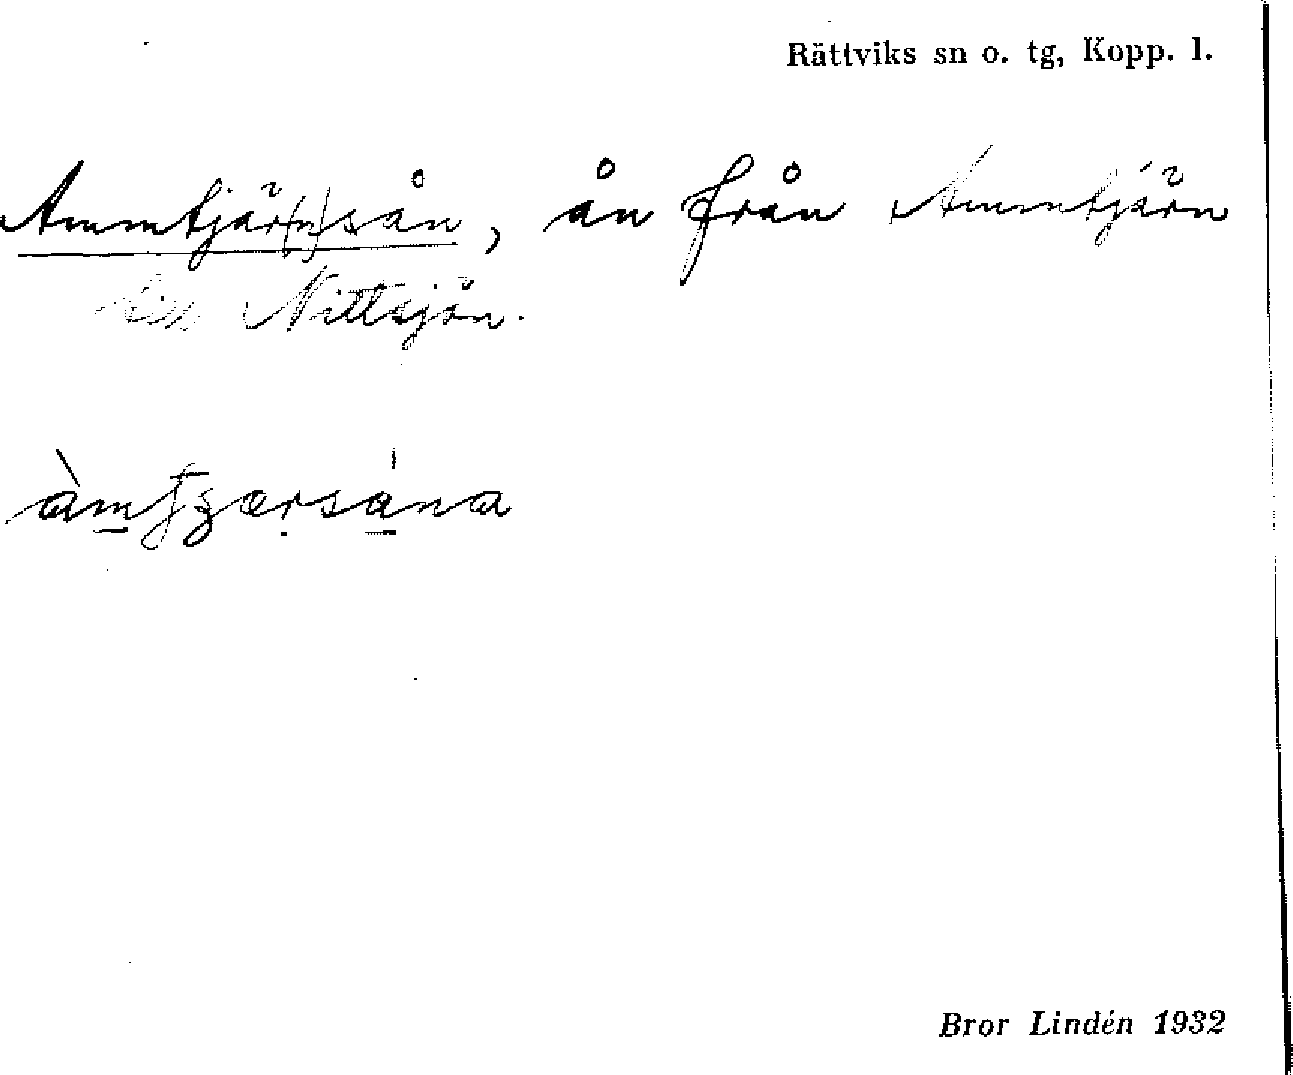 Rättviks sn o. tg, Kopp. l.
Ammtjär(n)sån, ån från Ammtjärn
till Nittsjön.
àmtʒærsána
Bror Lindén 1932